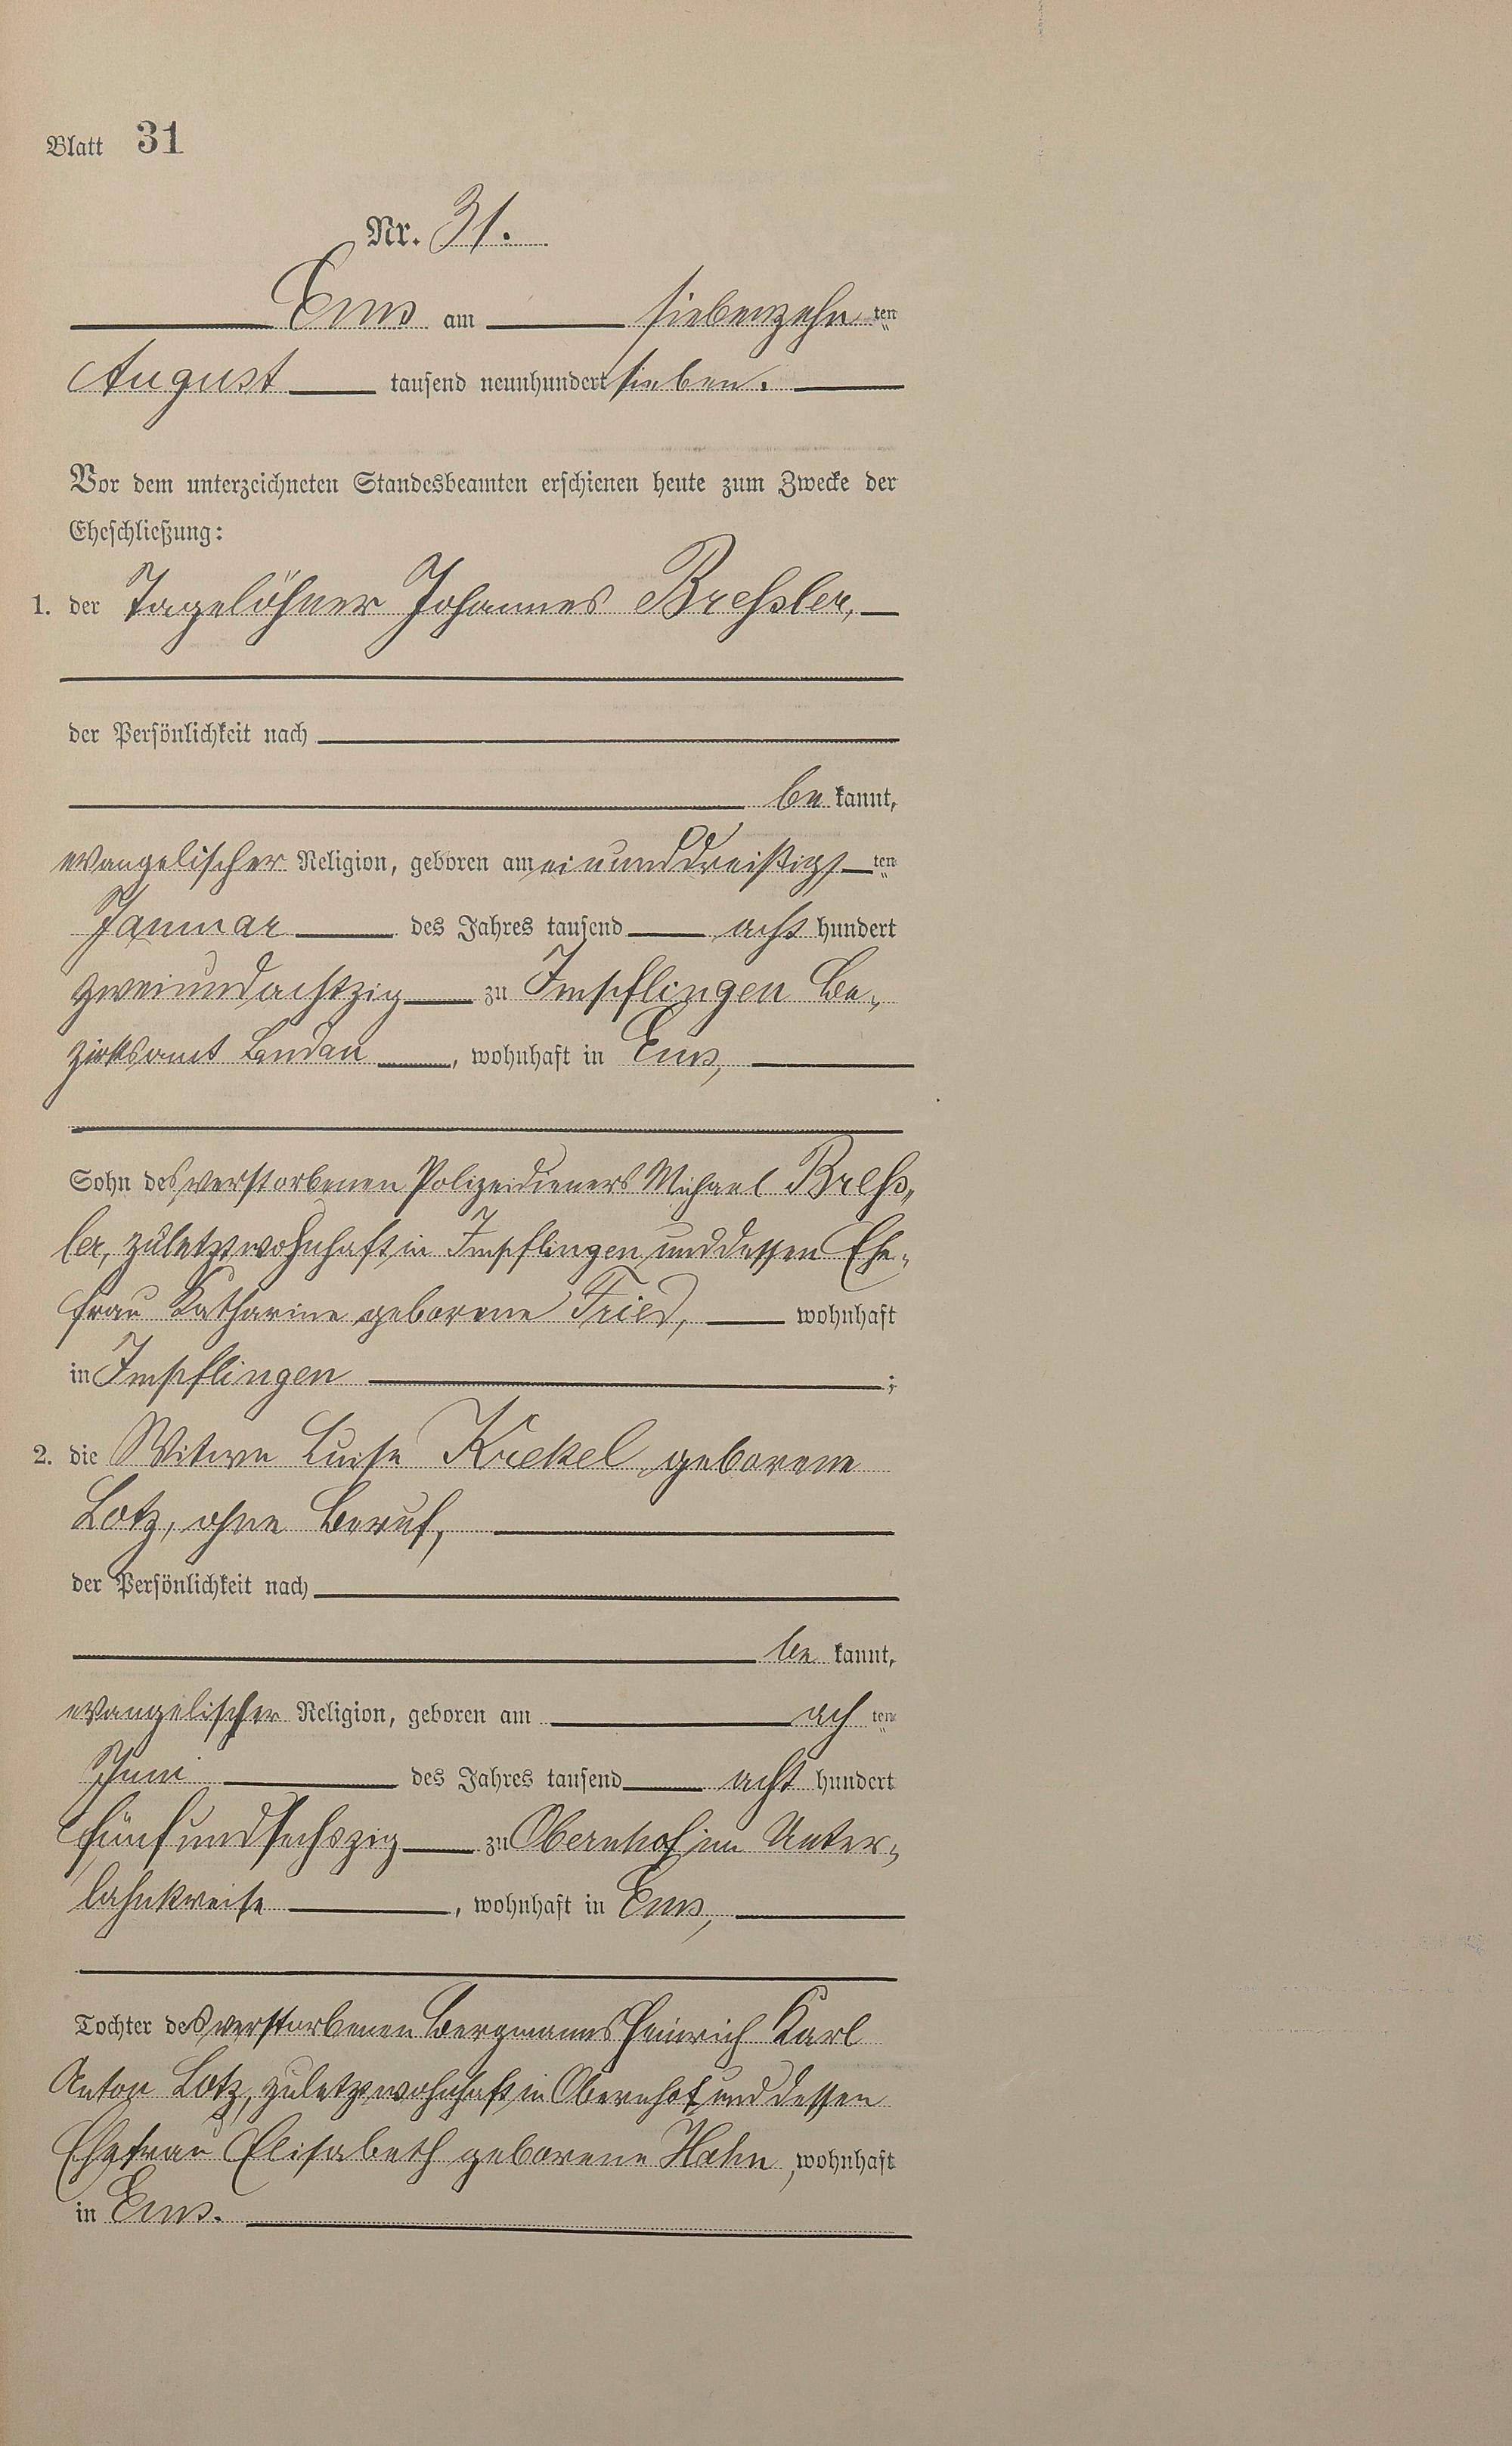 Blatt 31
Nr. 31.
Ems am siebenzehn ten
August tausend neunhundert sieben.
Vor dem unterzeichneten Standesbeamten erschienen heute zum Zwecke der
Eheschließung:
1. der Tagelöhner Johannes Breßler,
der Persönlichkeit nach
be kannt,
evangelischer Religion, geboren am einunddreißigst ten
Januar des Jahres tausend acht hundert
zweiundachtzig zu Impflingen Be-
zirksamt Landau, wohnhaft in Ems,
Sohn des verstorbenen Polizeidieners Michael Breß-
ler, zuletzt wohnhaft in Impflingen und dessen Ehe-
frau Katharine geborene Fried, wohnhaft
in Impflingen ;
2. die Witwe Luise Krekel geborene
Lotz, ohne Beruf,
der Persönlichkeit nach
be kannt,
evangelischer Religion, geboren am ach ten
Juni des Jahres tausend acht hundert
fünfundsechszig zu Obernhof im Unter-
lahnkreise, wohnhaft in Ems,
Tochter des verstorbenen Bergmanns Heinrich Karl
Anton Lotz, zuletzt wohnhaft in Obernhof und dessen
Ehefrau Elisabeth geborene Hahn, wohnhaft
in Ems.